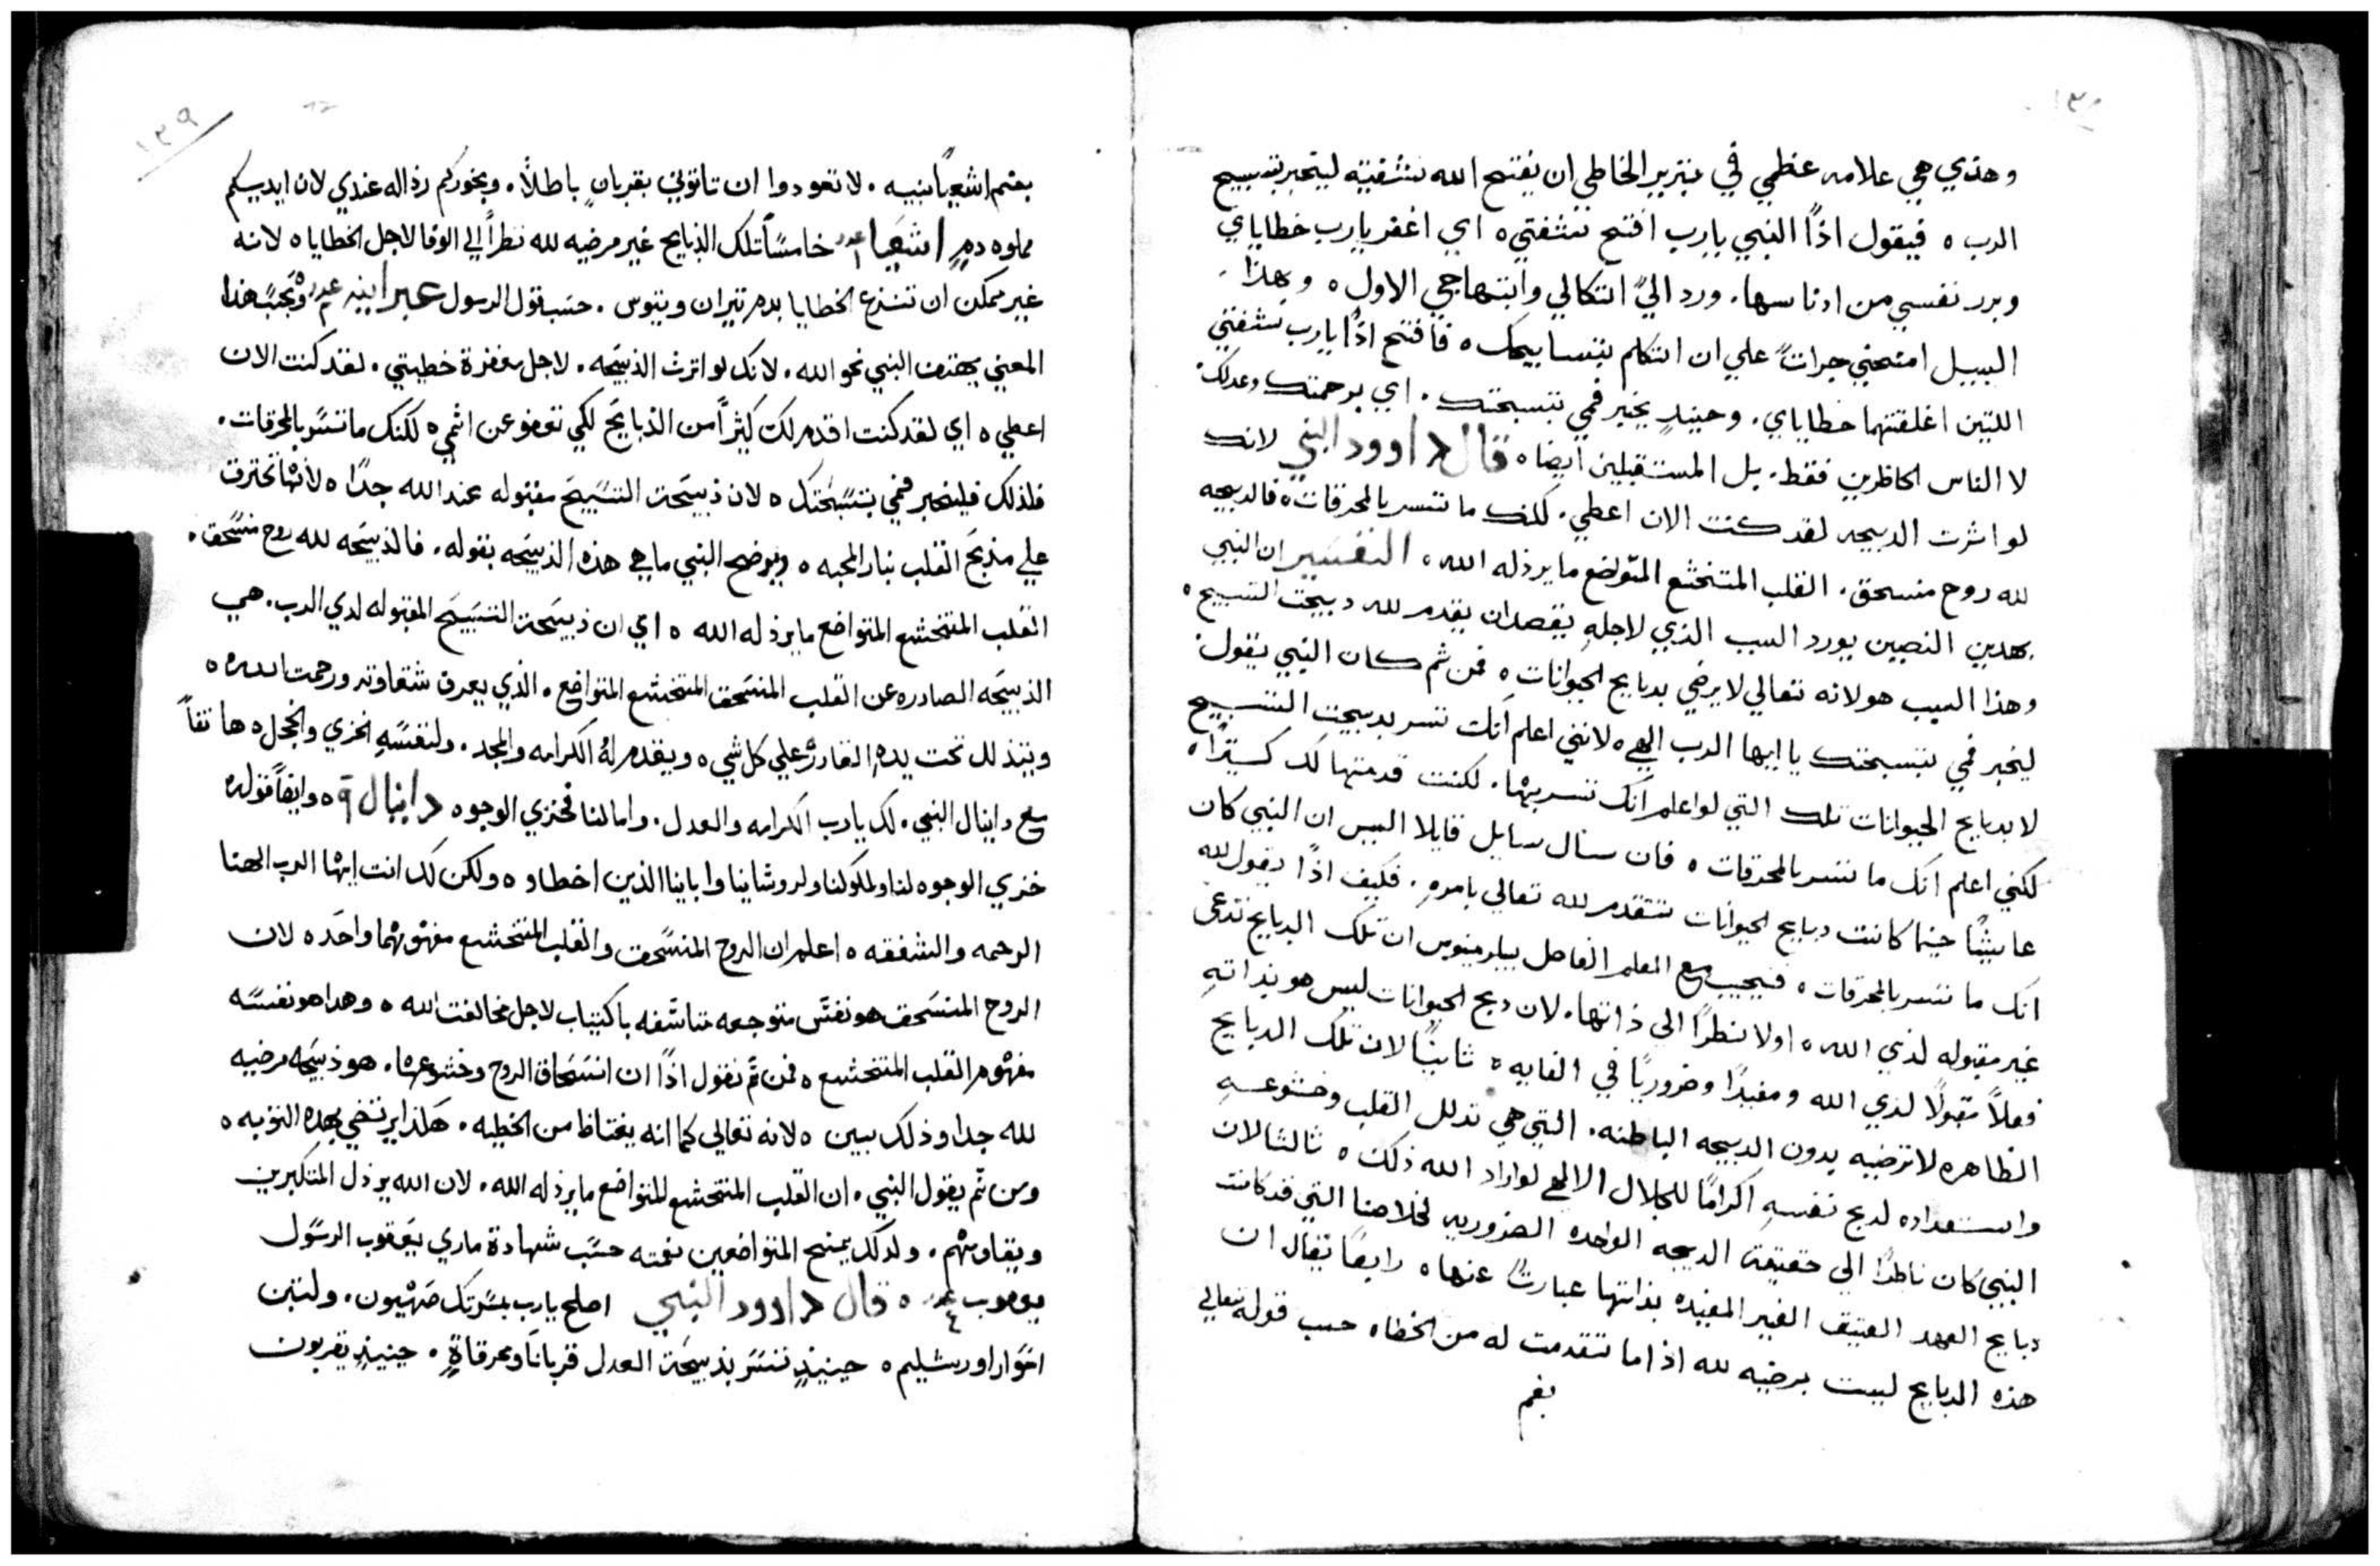 وهذي هي علامه عظمي في تبرير الخاطي ان يفتح الله شفتيه ليخبر بتسبيح
الرب ه فيقول اذًا النبي يارب افتح شفتي ه اي اغفر يارب خطاياي
وبرر نفسي من ادناسها . ورد اليّ اتكالي وابتهاجي الاول ه وبهذا
السبيل امنحني جراتً علي ان اتكلم بتسابيحك ه فافتح اذًا يارب شفتي
اللتين اغلقتهما خطاياي . وحينيذٍ يخبر فمي بتسبحتك . اي برحمتك وعدلك
لا الناس الحاظرين فقط . بل المستقبلين ايضا ه قال داوود النبي لانك
لو اثرت الدبيحه لقد كنت الان اعطي . لكنك ما تتسر بالمحرقات ه فالدبيحه
لله روح منسحق . القلب المتخشع المتواضع ما يرذله الله ه التفسير ان النبي
بهدين النصين يورد السبب الذي لاجله يقصد ان يقدم لله دبيحت التسبيح ه
وهذا السبب هو لانه تعالي لا يرضي بدبايح الحيوانات ه فمن ثم كان النبي يقول
ليخبر فمي بتسبحتك يا ايها الرب الهي ه لانني اعلم انك تتسر بدبيحت التسبيح
لا بدبايح الحيوانات تلك التي لو اعلم انك تتسر بها . لكنت قدمتها لك كثيرًا ه
لكني اعلم انك ما تتسر بالمحرقات ه فان سال سايل قايلا اليس ان النبي كان
عايشًا حينما كانت دبايح الحيوانات تتقدم لله تعالي بامره . فكيف اذًا يقول لله
انك ما تتسر بالمحرقات ه فنجيب مع المعلم الفاضل بيلرمينوس ان تلك الدبايح تدعي
غير مقبوله لدي الله ه اولا نظرًا الي ذاتها . لان دبح الحيوانات ليس هو بذاته
فعلاً مقبولًا لدي الله ومفيدًا وضروريًا في الغايه ه ثانيًا لان تلك الدبايح
الظاهره لا ترضيه بدون الدبيحه الباطنه . التي هي تدلل القلب وخشوعه
واستعداده لدبح نفسه اكرامًا للجلال الالهي لو اراد الله ذلك ه ثالثا لان
النبي كان ناظرًا الي حقيقة الدبيحه الواحده الضروريه لخلاصنا التي قد كانت
دبايح العهد العتيق الغير المفيده بذاتها عبارتً عنها ه رابعًا يقال ان
هذه الدبايح ليست برضيه لله اذا ما تتقدمت له من الخطاه حسب قوله تعالي
بفم
١٣٩
بفم اشعيا نبيه . لا تعودوا ان تاتوني بقربانٍ باطلاً . وبخوركم رذاله عندي لان ايديكم
مملوه دمٍ اشعيا ١ عدد خامسًا تلك الذبايح غير مرضيه لله نظراً الي الوفا لاجل الخطايا ه لانه
غير ممكن ان تنتزع الخطايا بدم تيران وتيوس . حسب قول الرسول عبرانيه عدد وبحسب هذا
المعني يهتف النبي نحو الله . لانك لو اثرت الذبيحه . لاجل مغفرة خطيتي . لقد كنت الان
اعطي ه اي لقد كنت اقدم لك كثيراً من الذبايح لكي تعفو عن اثمي ه لكنك ما تتسر بالمحرقات .
فلذلك فليخبر فمي بتسبحتك ه لان ذبيحة التسبيح مقبوله عند الله جدًا ه لانها تحترق
علي مذبح القلب بنار المحبه ه ويوضح النبي ما هي هذه الذبيحه بقوله . فالذبيحه لله روح منسحق .
القلب المتخشع المتواضع ما يرذله الله ه اي ان ذبيحة التسبيح المقبوله لدي الرب . هي
الذبيحه الصادره عن القلب المنسحق المتخشع المتواضع . الذي يعرف شقاوته ورحمت الله ه
ويتذلل تحت يده القادره علي كل شي ه ويقدم له الكرامه والمجد . ولنفسه الخزي والخجل ه هاتفاً
مع دانيال النبي . لك يارب الكرامه والعدل . واما لنا فخزي الوجوه دانيال ٩ ه وايضاً قوله
خزي الوجوه لنا ولملوكنا ولروشاينا واباينا الذين اخطاو ه ولكن لك انت ايها الرب الهنا
الرحمه والشفقه ه اعلم ان الروح المنسحق والقلب المتخشع مفهومهما واحده لان
الروح المنسحق هو نفس متوجعه متاسفه باكتياب لاجل مخالفت الله ه وهدا هو نفسه
مفهوم القلب المتخشع ه فمن ثم نقول اذًا ان انسحاق الروح وخشوعها . هو ذبيحه مرضيه
لله جدا وذلك بيين ه لانه تعالي كما انه يغتاظ من الخطيه . هكذا يرتضي بهده التوبه ه
ومن ثم يقول النبي . ان القلب المتخشع المتواضع ما يرذله الله . لان الله يرذل المتكبرين
ويقاومهم . ولدلك يمنح المتواضعين نعمته حسب شهادة ماري يعقوب الرسول
يعقوب عدد ٤ ه قال داوود النبي اصلح يارب بمسرتك صهيون . ولتبن
اسوار اورشليم ه حينيذٍ تتسر بذبيحة العدل قرباناً ومحرقاةٍ . حينيذٍ يقربون